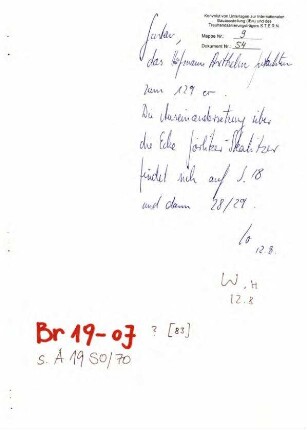 Konvolut von Unterlagen zur Internationalen
Bauausstellung (IBA) und des
Treuhandsanierungsträgers S.T.E.R.N.
Mappe Nr.: 9
Dokument Nr.: 54
Günter,
das Hofmann Barthelm Gutachten
zum 129 er.
Die Auseinandersetzung über
die Ecke Görlitzer-Skalitzer
findet sich auf S. 18
und dann 28/29.
12.8.
W. H
12.8
Br 19-07 ? [83]
s. A 19 SO/70